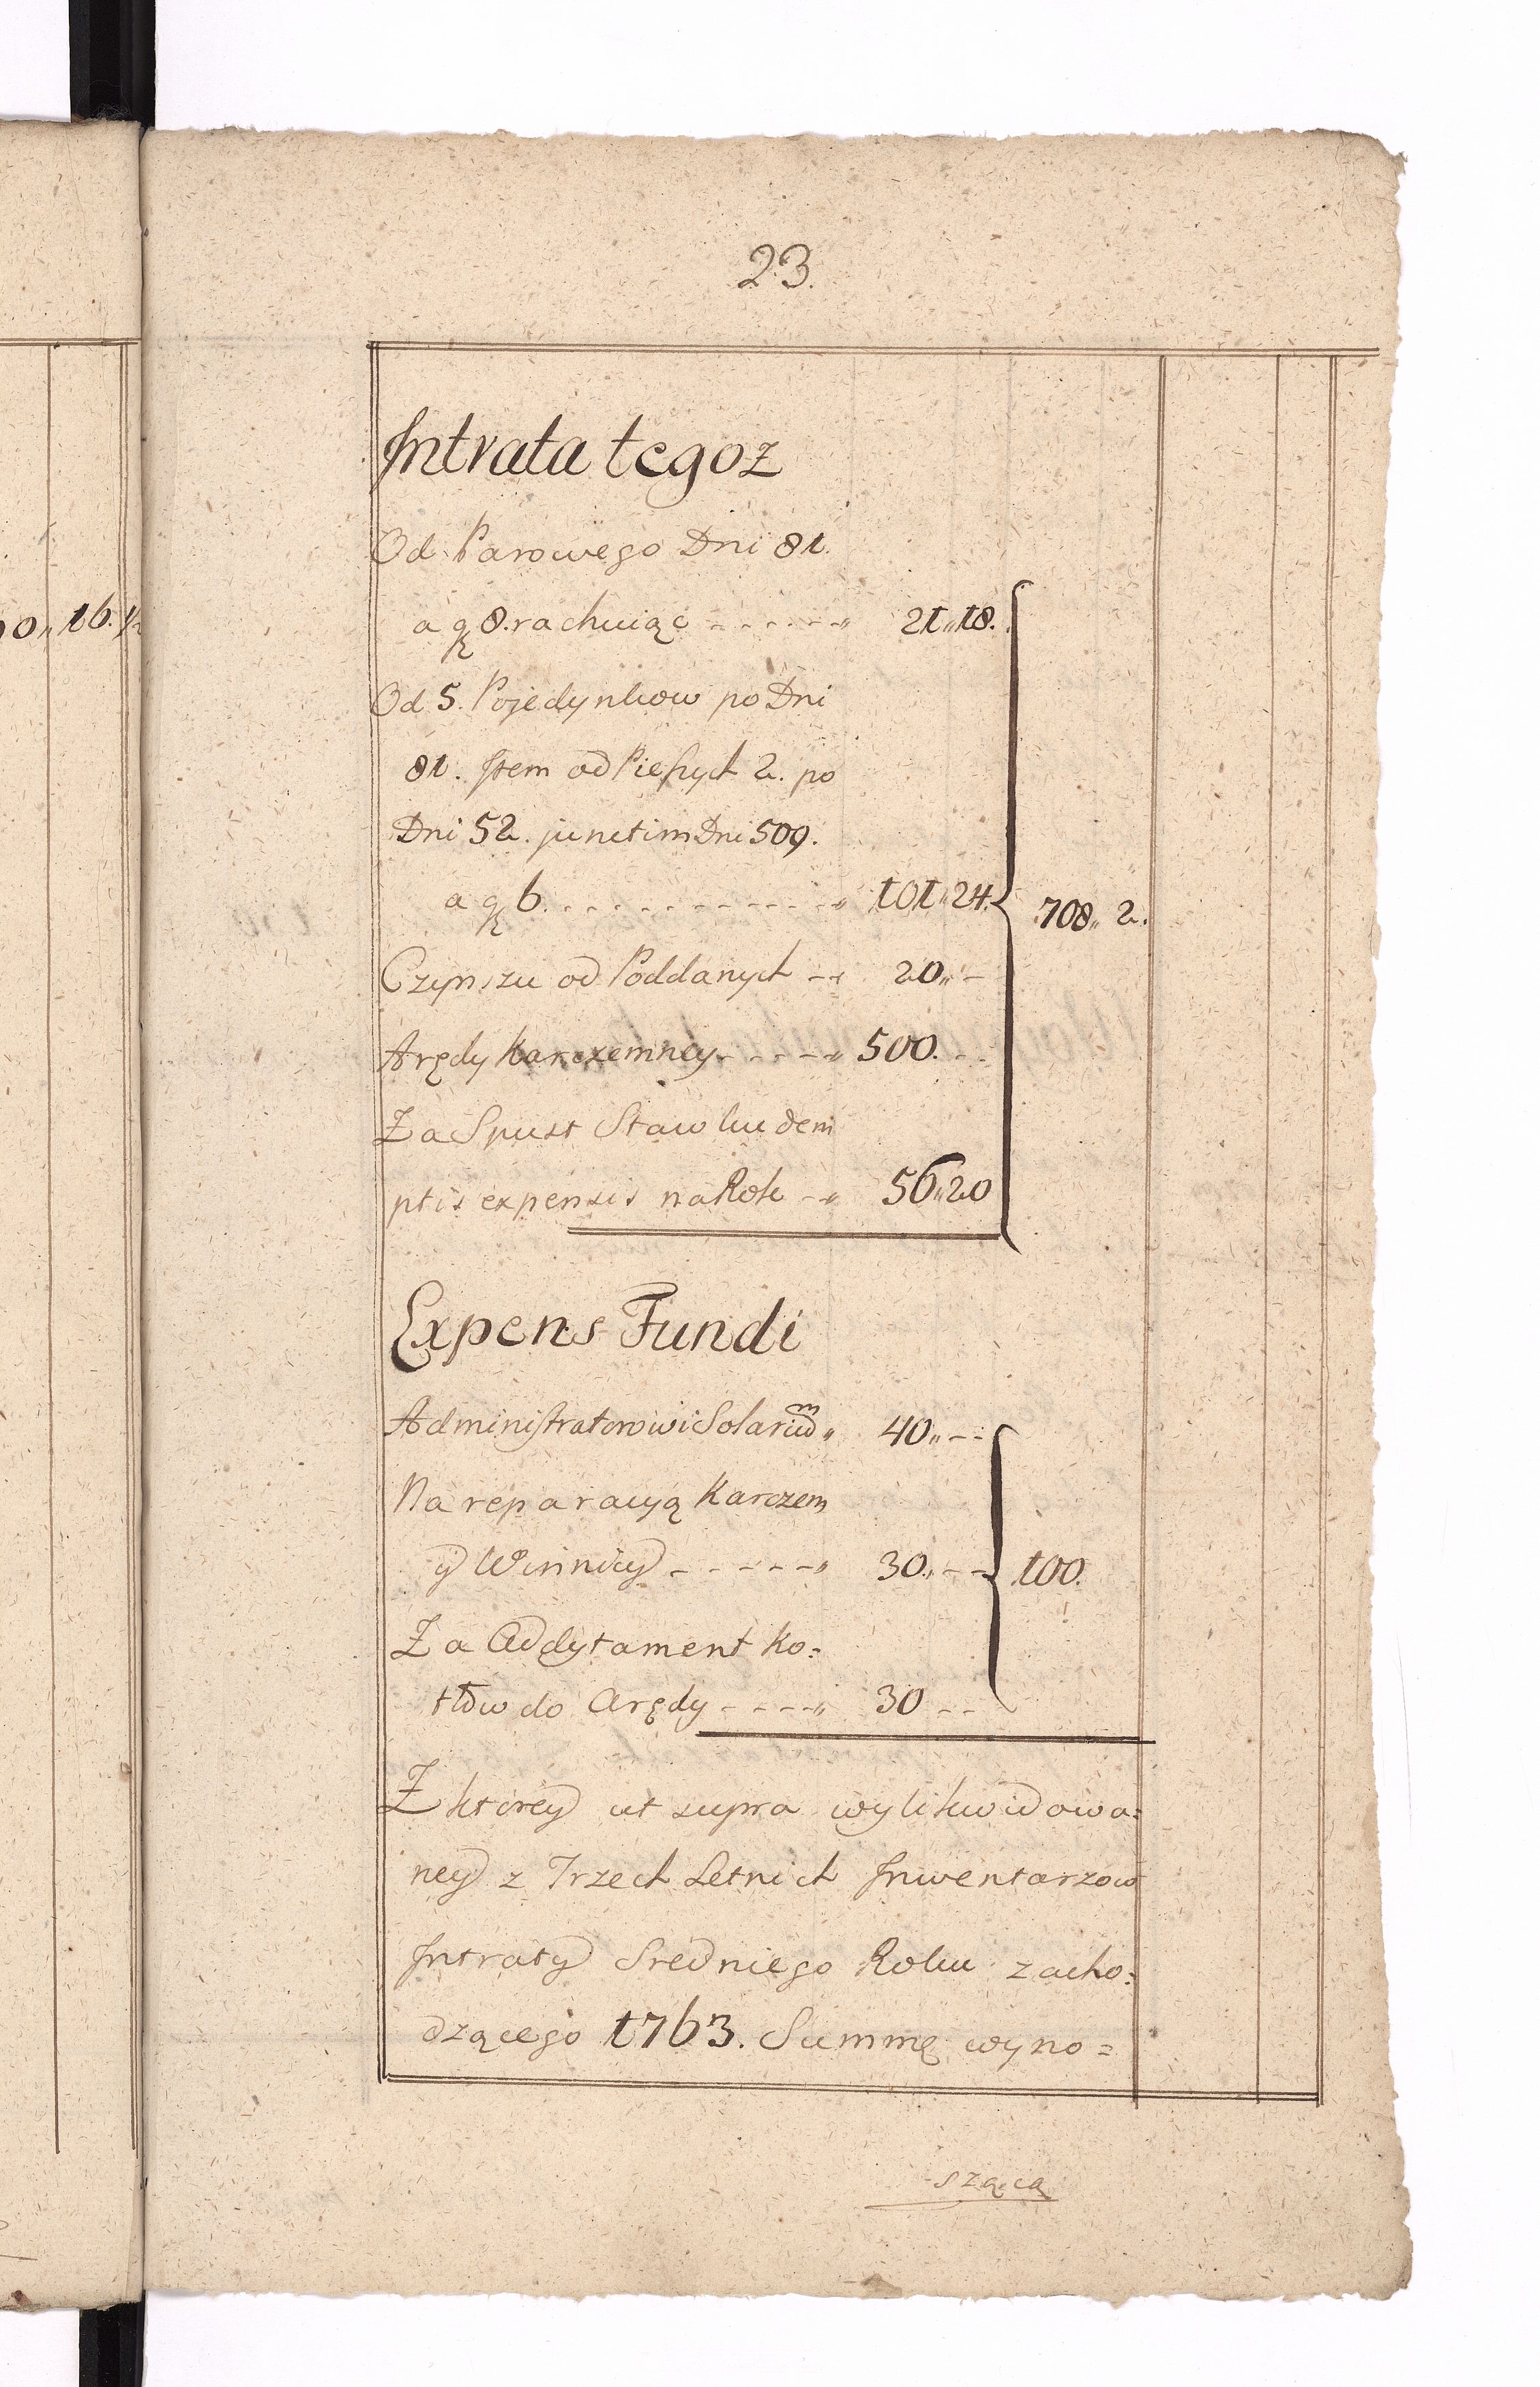 23.
Intrata tegoz
Od Parowego Dni 81.
a gę 8. rachuiąc - - - - - - " 21 " 18.
Od 5. Pojedynkow po Dni
81. Item od Pieszych 2. po
Dni 52. junctim Dni 509.
a gę 6. - - - - - - - - - - - " 101 " 24. 708 " 2.
Czynszu od Poddanych - " 20 " -
Arędy Karczemney - - - - " 500. - -
Za Spust Stawku dem
ptis expensis na Rok - " 56 " 20
Expens Fundi
Administratorowi Solarium " 40 " - -
Na reparacyą Karczem
y Winnicy - - - - - " 30 " - - 100.
Za Addytament Ko=
tłow do Arędy - - - - " 30 - -
Z ktorey ut supra wylikwidowa=
ney z Trzech Letnich Inwentarzow
Intraty Sredniego Roku zacho=
dzącego 1763. Summę wyno=
sząca
0 " 16. 1/2